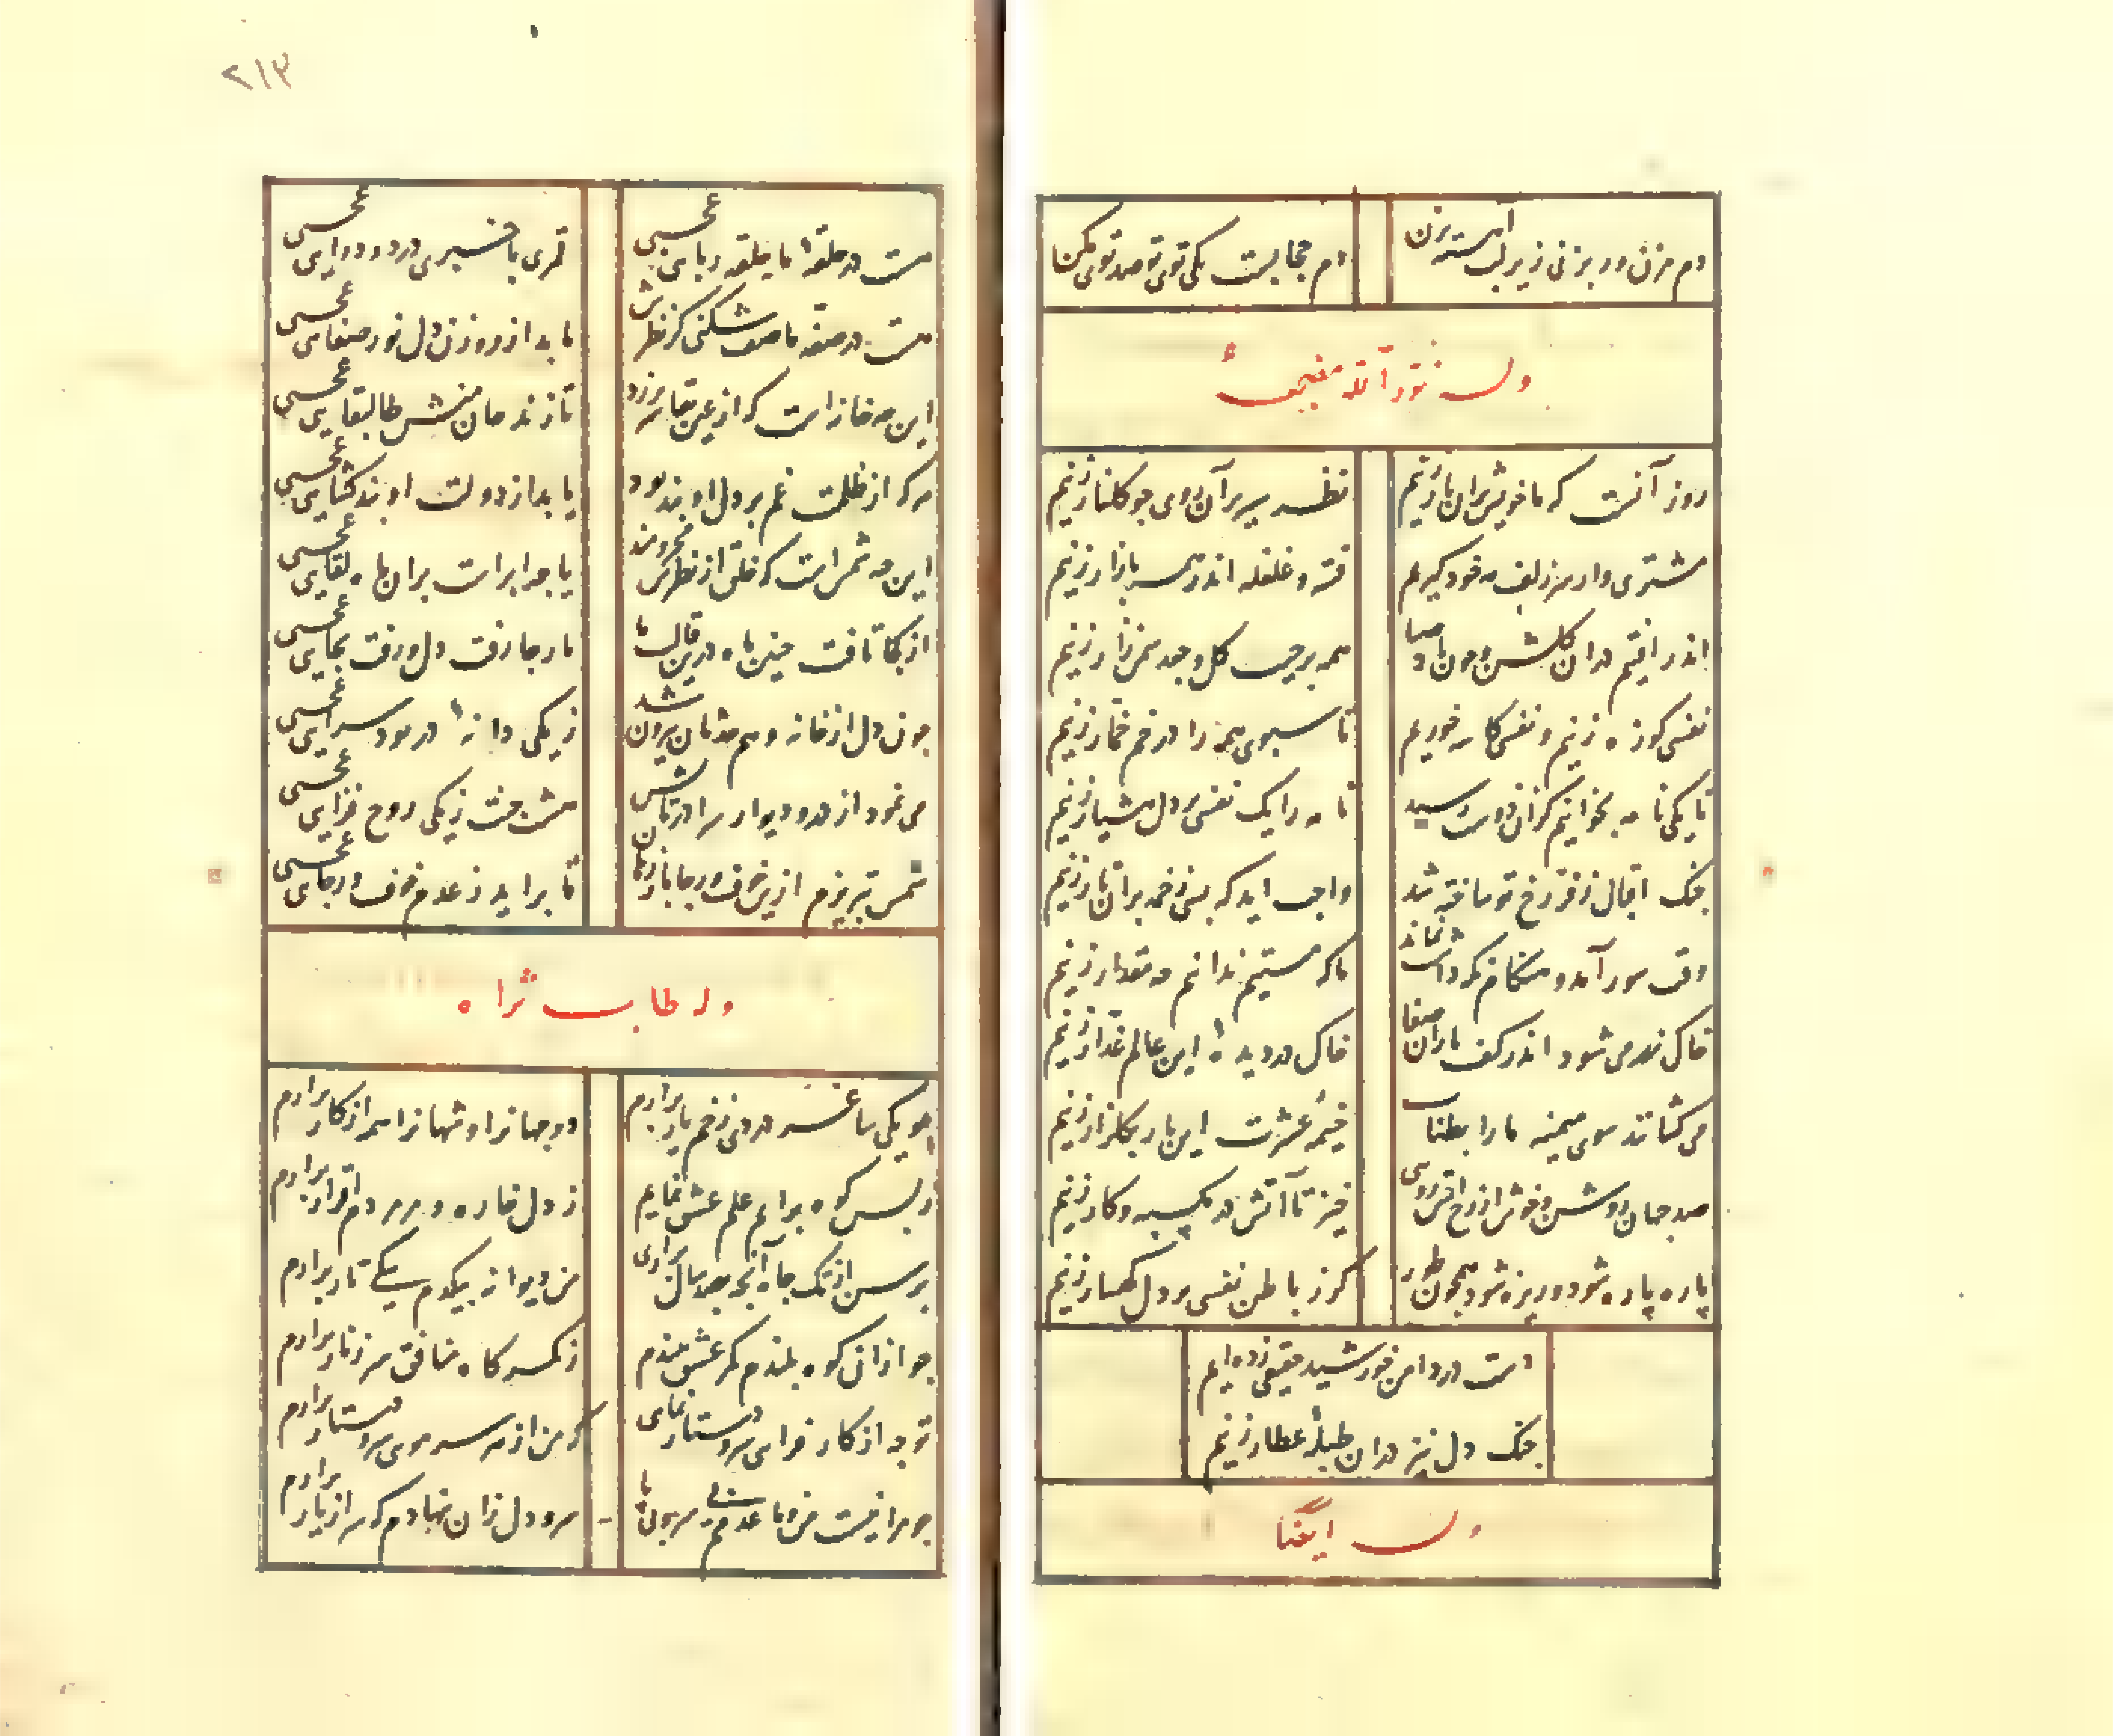 دم مزن ور بزنی زیر لب آهسته بزن
دم حجابست یکی توی تو صد توی مکن
وله نور الله مضجعه
روز آنست که ما خویش بران یار زنیم
نظر سیر بر آن روی چو گلنار زنیم
مشتری وار سر زلف مه خود گیریم
فتنه و غلغله اندر همه بازار زنیم
اندر افتیم در ان گلشن چون باد صبا
همه بر جیب گل و جعد سمن زار زنیم
نفسی کوزه زنیم و نفسی کاسه خوریم
تا سبوی همه را در خم خمار زنیم
تا بکی نامه بخوانیم گزان دوست رسید
تا مه را یک نفسی بر دل هشیار زنیم
چنک اقبال ز فر رخ تو ساخته شد
واجب اید که بسی زخمه بران تار زنیم
وقت شور آمد و هنگام نگه داشت نماند
ما که مستیم ندانیم چه مقدار زنیم
خاک زر می شود اندر کف یاران صفا
خاک در دیدهٔ این عالم غدار زنیم
می کشانند سوی میمنه ما را بطناب
خیمهٔ عشرت این بار بگلزار زنیم
صد جهان روشن و خوش از رخ افروزی
خیز تا آتش در مکسبه و کار زنیم
پاره پاره شود و ریزه شود همچون طور
گر ز باطن نفسی بر دل کهسار زنیم
دست در دامن خورشید حقیقی زده‌ایم
چنک دل نیز در ان طبلهٔ عطار زنیم
وله ایضا
۲۱۳
هست در حلقهٔ ما حلقه ربای عجبی
قمری با خبری درد و دوای عجبی
هست در صفه ما صف شکنی کز نظرش
تابد از روزن دل نور صفای عجبی
این چه خانه است که از عین بقا سر بزند
تا زند جان منش طال بقای عجبی
هر که از ظلمت غم بر دل او بند بود
یابد از دولت او بند گشای عجبی
این چه شمس است که خلق از نظرش محرومند
یا چه ابر است بران ماه لقای عجبی
از کجا تافت چنین ماه درین قالب ما
تا ز جا رفت دل و رفت بجای عجبی
چون دل از خانه وهم حدثان بیرون شد
ز یکی دانهٔ در بود سرای عجبی
می نمود از در و دیوار سرا در تابش
هشت جنت ز یکی روح فزای عجبی
شمس تبریزم ازین خوف و رجا باز رهان
تا براید ز عدم خوف و رجای عجبی
وله طاب ثراه
چو یکی ساغر مردی ز خم یار برارم
دو جهانرا و نهانرا همه از کار برارم
ز پس کوه برایم علم عشق نمایم
ز دل خاره و مرمر دم اقرار برارم
برسن از تک چاه آنچه بصد سال براری
من دیوانه بیکدم بیکی تار برارم
چو ازان کوه بلندم کمر عشق ببندم
ز کمرگاه منافق سر زنار برارم
تو چه از کار فزای سر و دستار نمای
که من از هر سر موی سر و دستار برارم
چو مرا نیست من و ما عدمم بی سر و بی پا
سر و دل زان بنهادم که سر از یار برارم